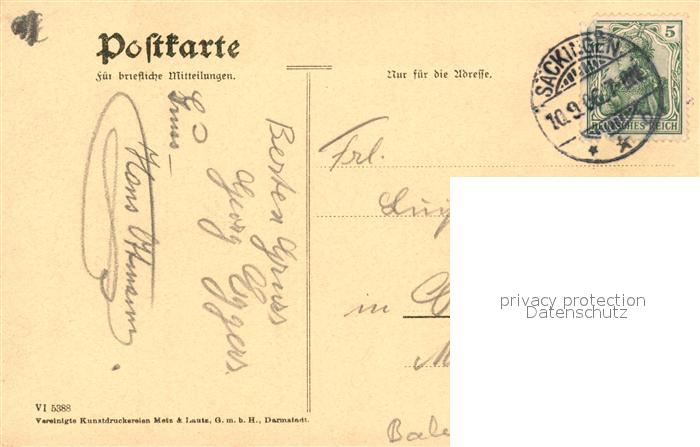 Postkarte
Für briefliche Mitteilungen.
Nur für die Adresse.
SÄCKINGEN
10.9.06
5 5
DEUTSCHES REICH
Besten Gruss
Georg Eggers.
Gruss
Hans Othmann
Frl.
in
privacy protection
Datenschutz
VI 5388
Vereinigte Kunstdruckereien Metz & Lautz, G. m. b. H., Darmstadt.